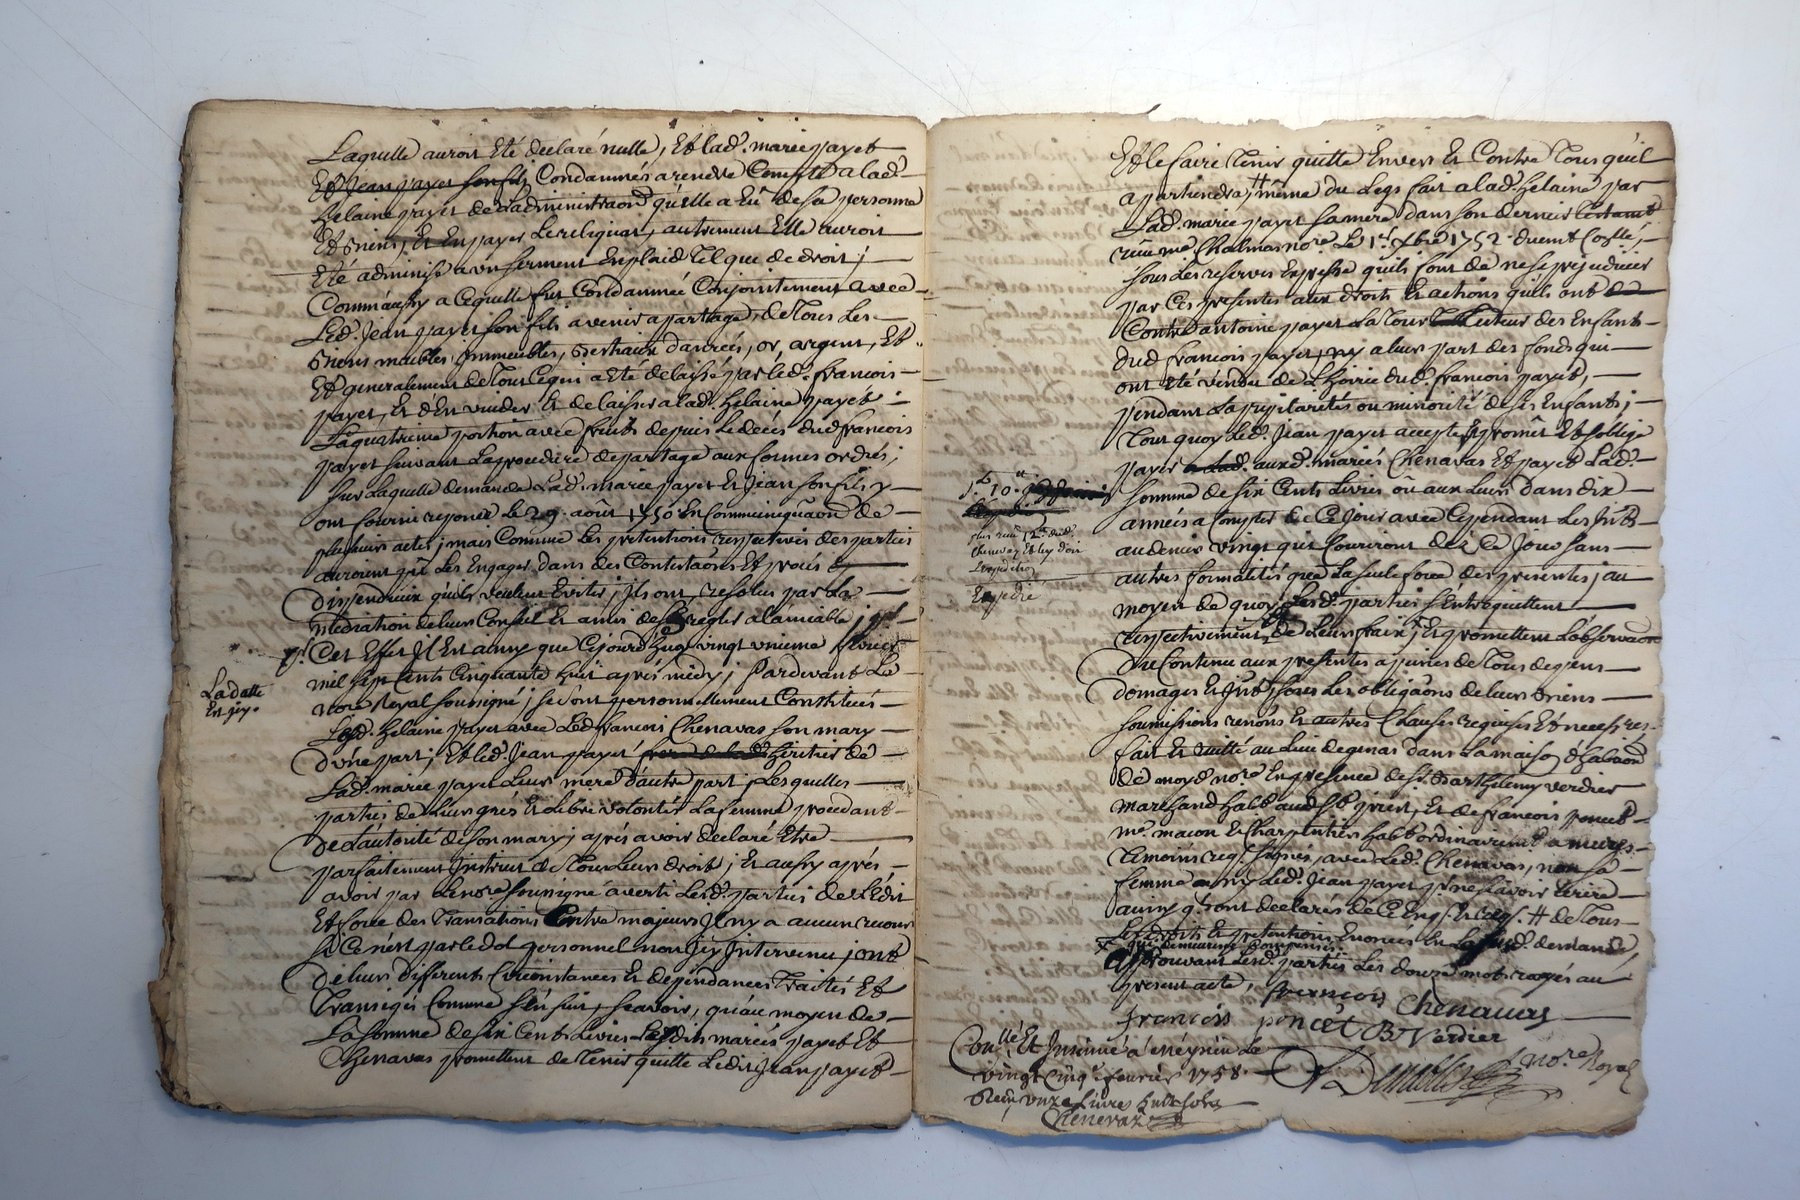 Laquelle auroit Eté declaré nulle, Et lad.e marie payet
Et Jean payet son fils Condamnés a rendre Compte a lad.e
helaine payet de l'administraon qu'elle a Eû de sa personne
Et biens, Et En payer le reliquat, autrement Elle auroit
Eté adminise a un serment En plaid Tel que de droit;
Comm'aussy a Ce qu'elle fut Condamnée Conjointement avec
Led. Jean payet son fils a venir a partage, de Tous les
biens meubles, Immeubles, bestiaux danrées, or, argent, Et
Et generalement de Tout Ce qui a Eté delaissé par led. francois
payet, Et d'En vuider Et delaisser a lad. helaine payet
La quatrieme portion avec fruits depuis le décés dud francois
payet suivant La procedure de partage aux formes ordrés;
Sur Laquelle demande Lad. marie payet Et Jean son fils y
ont fourni reponce Le 29. août 1750 En Communiquaon de
plusieurs actes; mais Comme les pretentions respectives des parties
auroient pû Les Engager dans des Contestaons Et procés
dispendieux qu'ils veulent Eviter; Ils ont, resolus par La
mediation de leurs Conseil Et amis de regler a l'amiable;
Cet Effet Il Est ainsy que Cejourd'huy vingt unieme fevrier
mil sept Cents Cinquante huit aprés midy; Pardevant Le
La datte
Est jey.
nore Royal soussigné; se sont personnellement Constitués
Lad. helaine payet avec Led francois Chenavas son mary
d'une part; Et led. Jean payet heritier de
Lad. marie payet Leur mere d'autre part; Lesquelles
parties de Leurs grés Et Libre volontés La femme procedant
De L'autorité de son mary; aprés avoir declaré Etre
parfaitement Instruit de Tous Leurs droits; Et aussy aprés
avoir par Le nore soussigné averti Lesd. parties de L'Edit
Et force des Transations Entre majeurs Il ny a aucun recours
Si Ce n'est par le dol personnel non Icy Intervenu; ont
de leurs differents Circonstances Et dependances Traités Et
Transigés Comme s'En suit, scavoir, qu'au moyen de
La somme de six Cents Livres Lesdits mariés payet Et
Chenavas promettent de Tenir quitte Ledit Jean payet
Et le faire Tenir quitte Envers Et Contre Tous qu'il
apartiendra, # même du Legs fait a lad. helaine par
Lad. marie payet sa mere dans son dernier Testamt
reçu me Chalmas nore Le 1er xbre 1752 duemt Collé,
Sous Les reserves Expresse qu'ils font de ne se prejudicier
par Ces presentes aux droits Et actions qu'ils ont
Contre antoine payet La Tour Tuteur des Enfants
Dud francois payet, ny a leur part des fonds qui
ont Eté vendu de L'hoirie dud. francois payet,
pendant La pupilarités ou minorité de ses Enfants;
Tout quoy Led. Jean payet accepte Et promêt Et s'oblige
payer auxd. mariés Chenavas Et payet Lad.
Somme de six Cents Livres où aux Leurs dans dix
années a Compter de Ce Jour avec Cependant Les Jnts
au denier vingt qui Couriront dés Ce Jour sans
autres formalités que La seule force des presentes; au
Expedié
moyen de quoy Lesd. parties s'Entrequittent
respectivement, de Leurs frais; Et promettent L'observaon
Du Contenu aux presentes a peines de Tous depens
domages Et Jnts, sous Les obligaons de leurs biens
soumissions renons Et autres Clauses requises Et necessres.
fait Et au Lieu de genas dans La maison d'habaon
de moyd nore En presence de sr. Barthelemy verdier
marchand habt aud Lt priest, Et de francois poncet
me macon Et Charpentier habt ordinairement a mures
Temoins req. signés, avec Led. Chenavas, non sa
femme ny Led. Jean payet pr ne sçavoir Ecrire
ainsy qt sont declarés de Ce Enq. Et req. # de Tous
Les droits Et pretentions Enoncés En Lad. demande,
qui demeurent Compensés.
approuvant Lesd. parties Les douze mots rayés au
present acte,
francois Chenavas
francois poncet B Verdier
nore Royal
Conllé Et Insinué a meyzieu Le
vingt Cinq fevrier 1758
Reçu onze Livres huit sols
Cheneraz